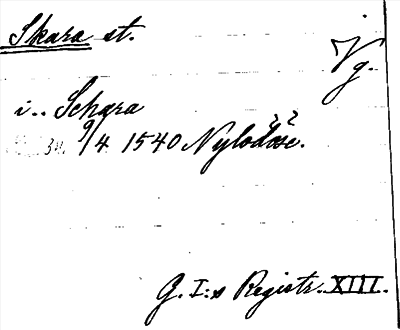 Skara st.
Vg.
i.. Schara
9/4 1540 Nylödöse.
G. I:s Registr. XIII.